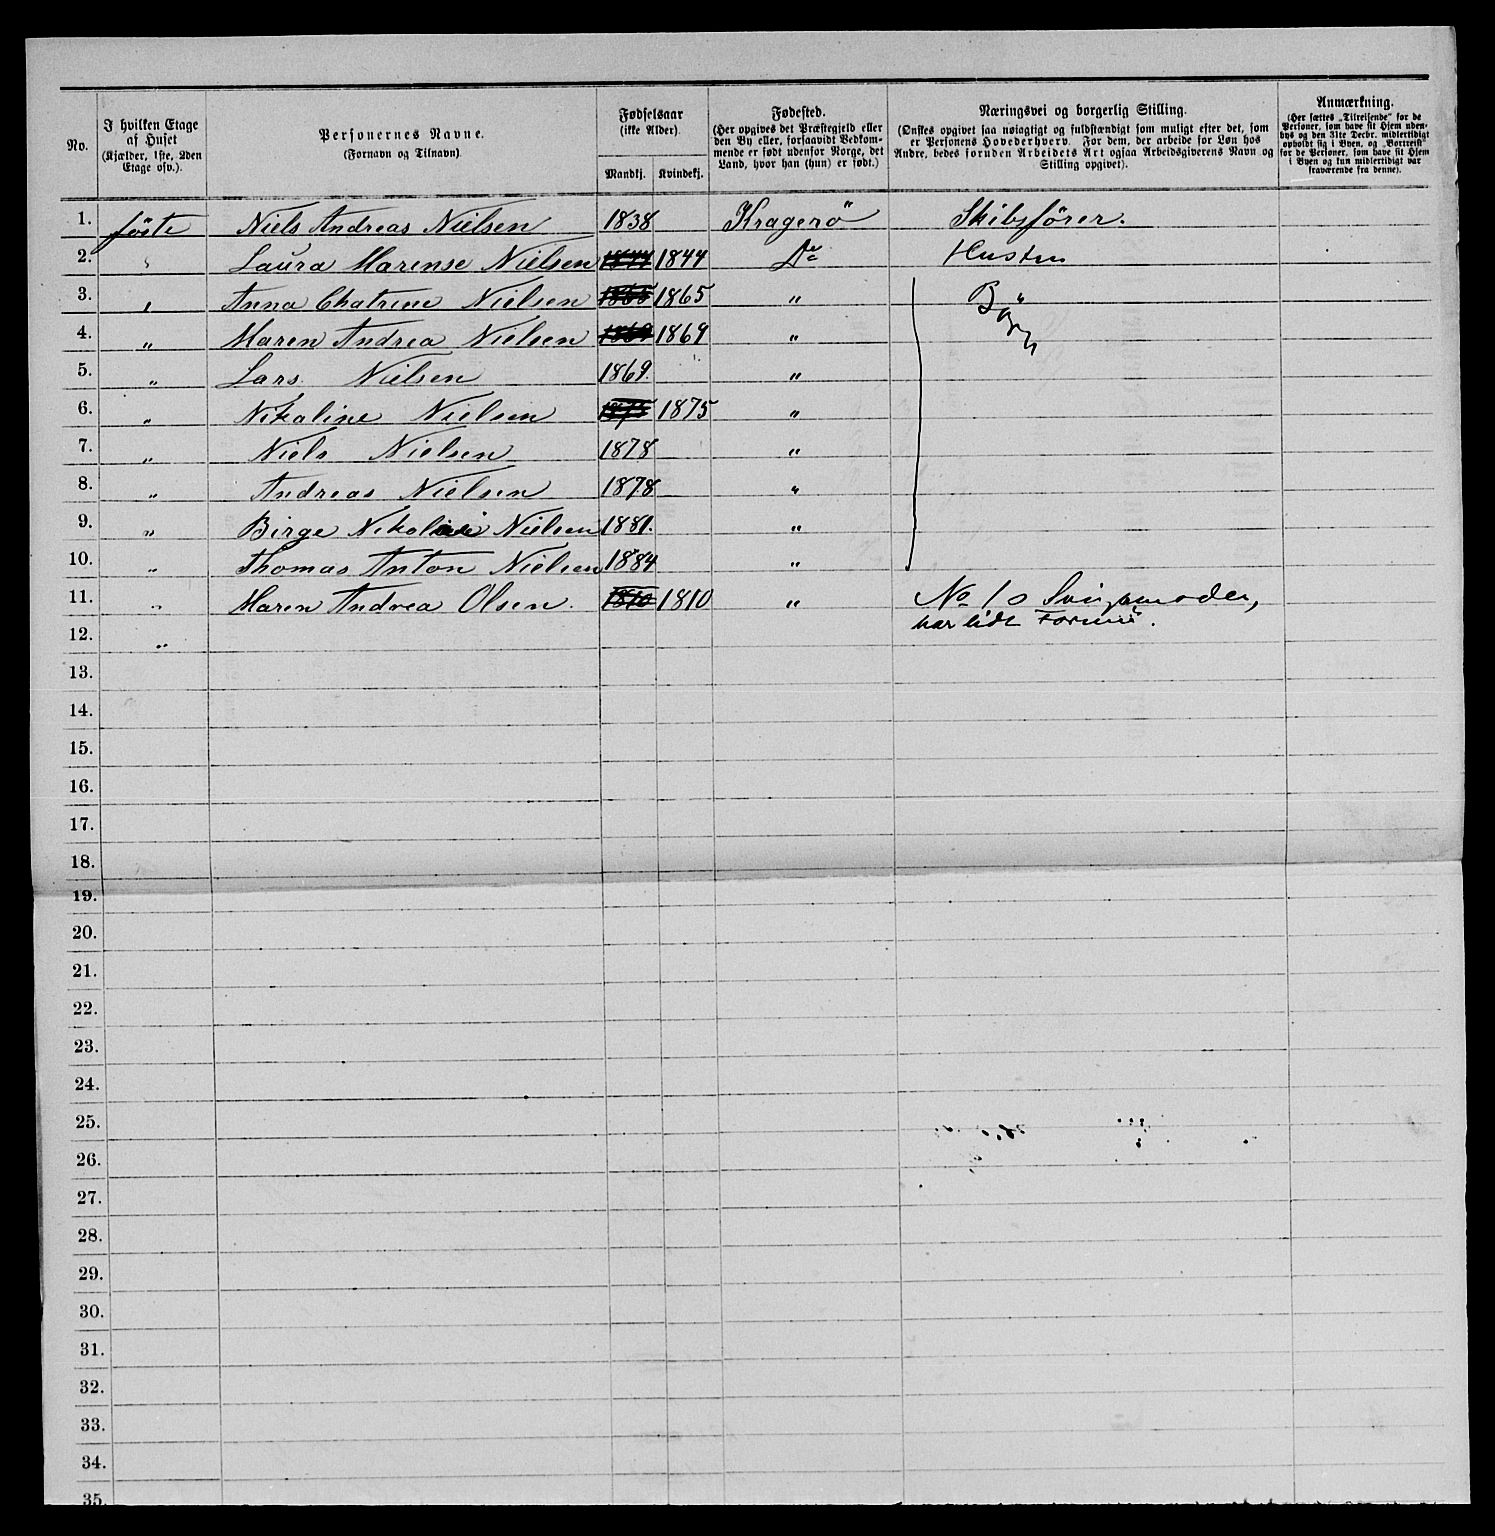 No.
I hvilken Etage
af Huset
(Kjælder, 1ste, 2den
Etage osv.).
Personernes Navne.
(Fornavn og Tilnavn)
Fødselsaar
(ikke Alder).
Mandkj. Kvindekj.
Fødested.
(Her opgives det Præstegjeld eller
den By eller, forsaavidt Vedkom-
mende er født udenfor Norge, det
Land, hvor han (hun) er født.)
Næringsvei og borgerlig Stilling.
(Ønskes opgivet saa nøiagtigt og fuldstændigt som muligt efter det, som
er Personens Hovederhverv. For dem, der arbeide for Løn hos
Andre, bedes foruden Arbeidets Art ogsaa Arbeidsgiverens Navn og
Stilling opgivet).
Anmærkning.
(Her sættes „Tilreisende" for de
Personer, som have sit Hjem uden-
bys og den 31te Decbr. midlertidigt
opholdt sig i Byen, og „Bortreist"
for de Personer, som have sit Hjem
i Byen og kun midlertidigt var
fraværende fra denne).
1. föste Niels Andreas Nielsen 1838 Kragerö Skibsförer.
2. " Laura Marense Nielsen 1844 1844 Do Hustru
3. " Anna Chatrine Nielsen 1865 1865 " Börn
4. " Maren Andrea Nielsen 1869 1869 "
5. " Lars Nielsen 1869. "
6. " Nikoline Nielsen 1875 1875 "
7. " Niels Nielsen 1878 "
8. " Andreas Nielsen 1878 "
9. " Birge Nikolai Nielsen 1881. "
10. " Thomas Anton Nielsen 1884 "
11. " Maren Andrea Olsen. 1810 1810 " No 1s Svigermoder,
har lidt Formue.
12. "
13.
14.
15.
16.
17.
18.
19.
20.
21.
22.
23.
24.
25.
26.
27.
28.
29.
30.
31.
32.
33.
34.
35.